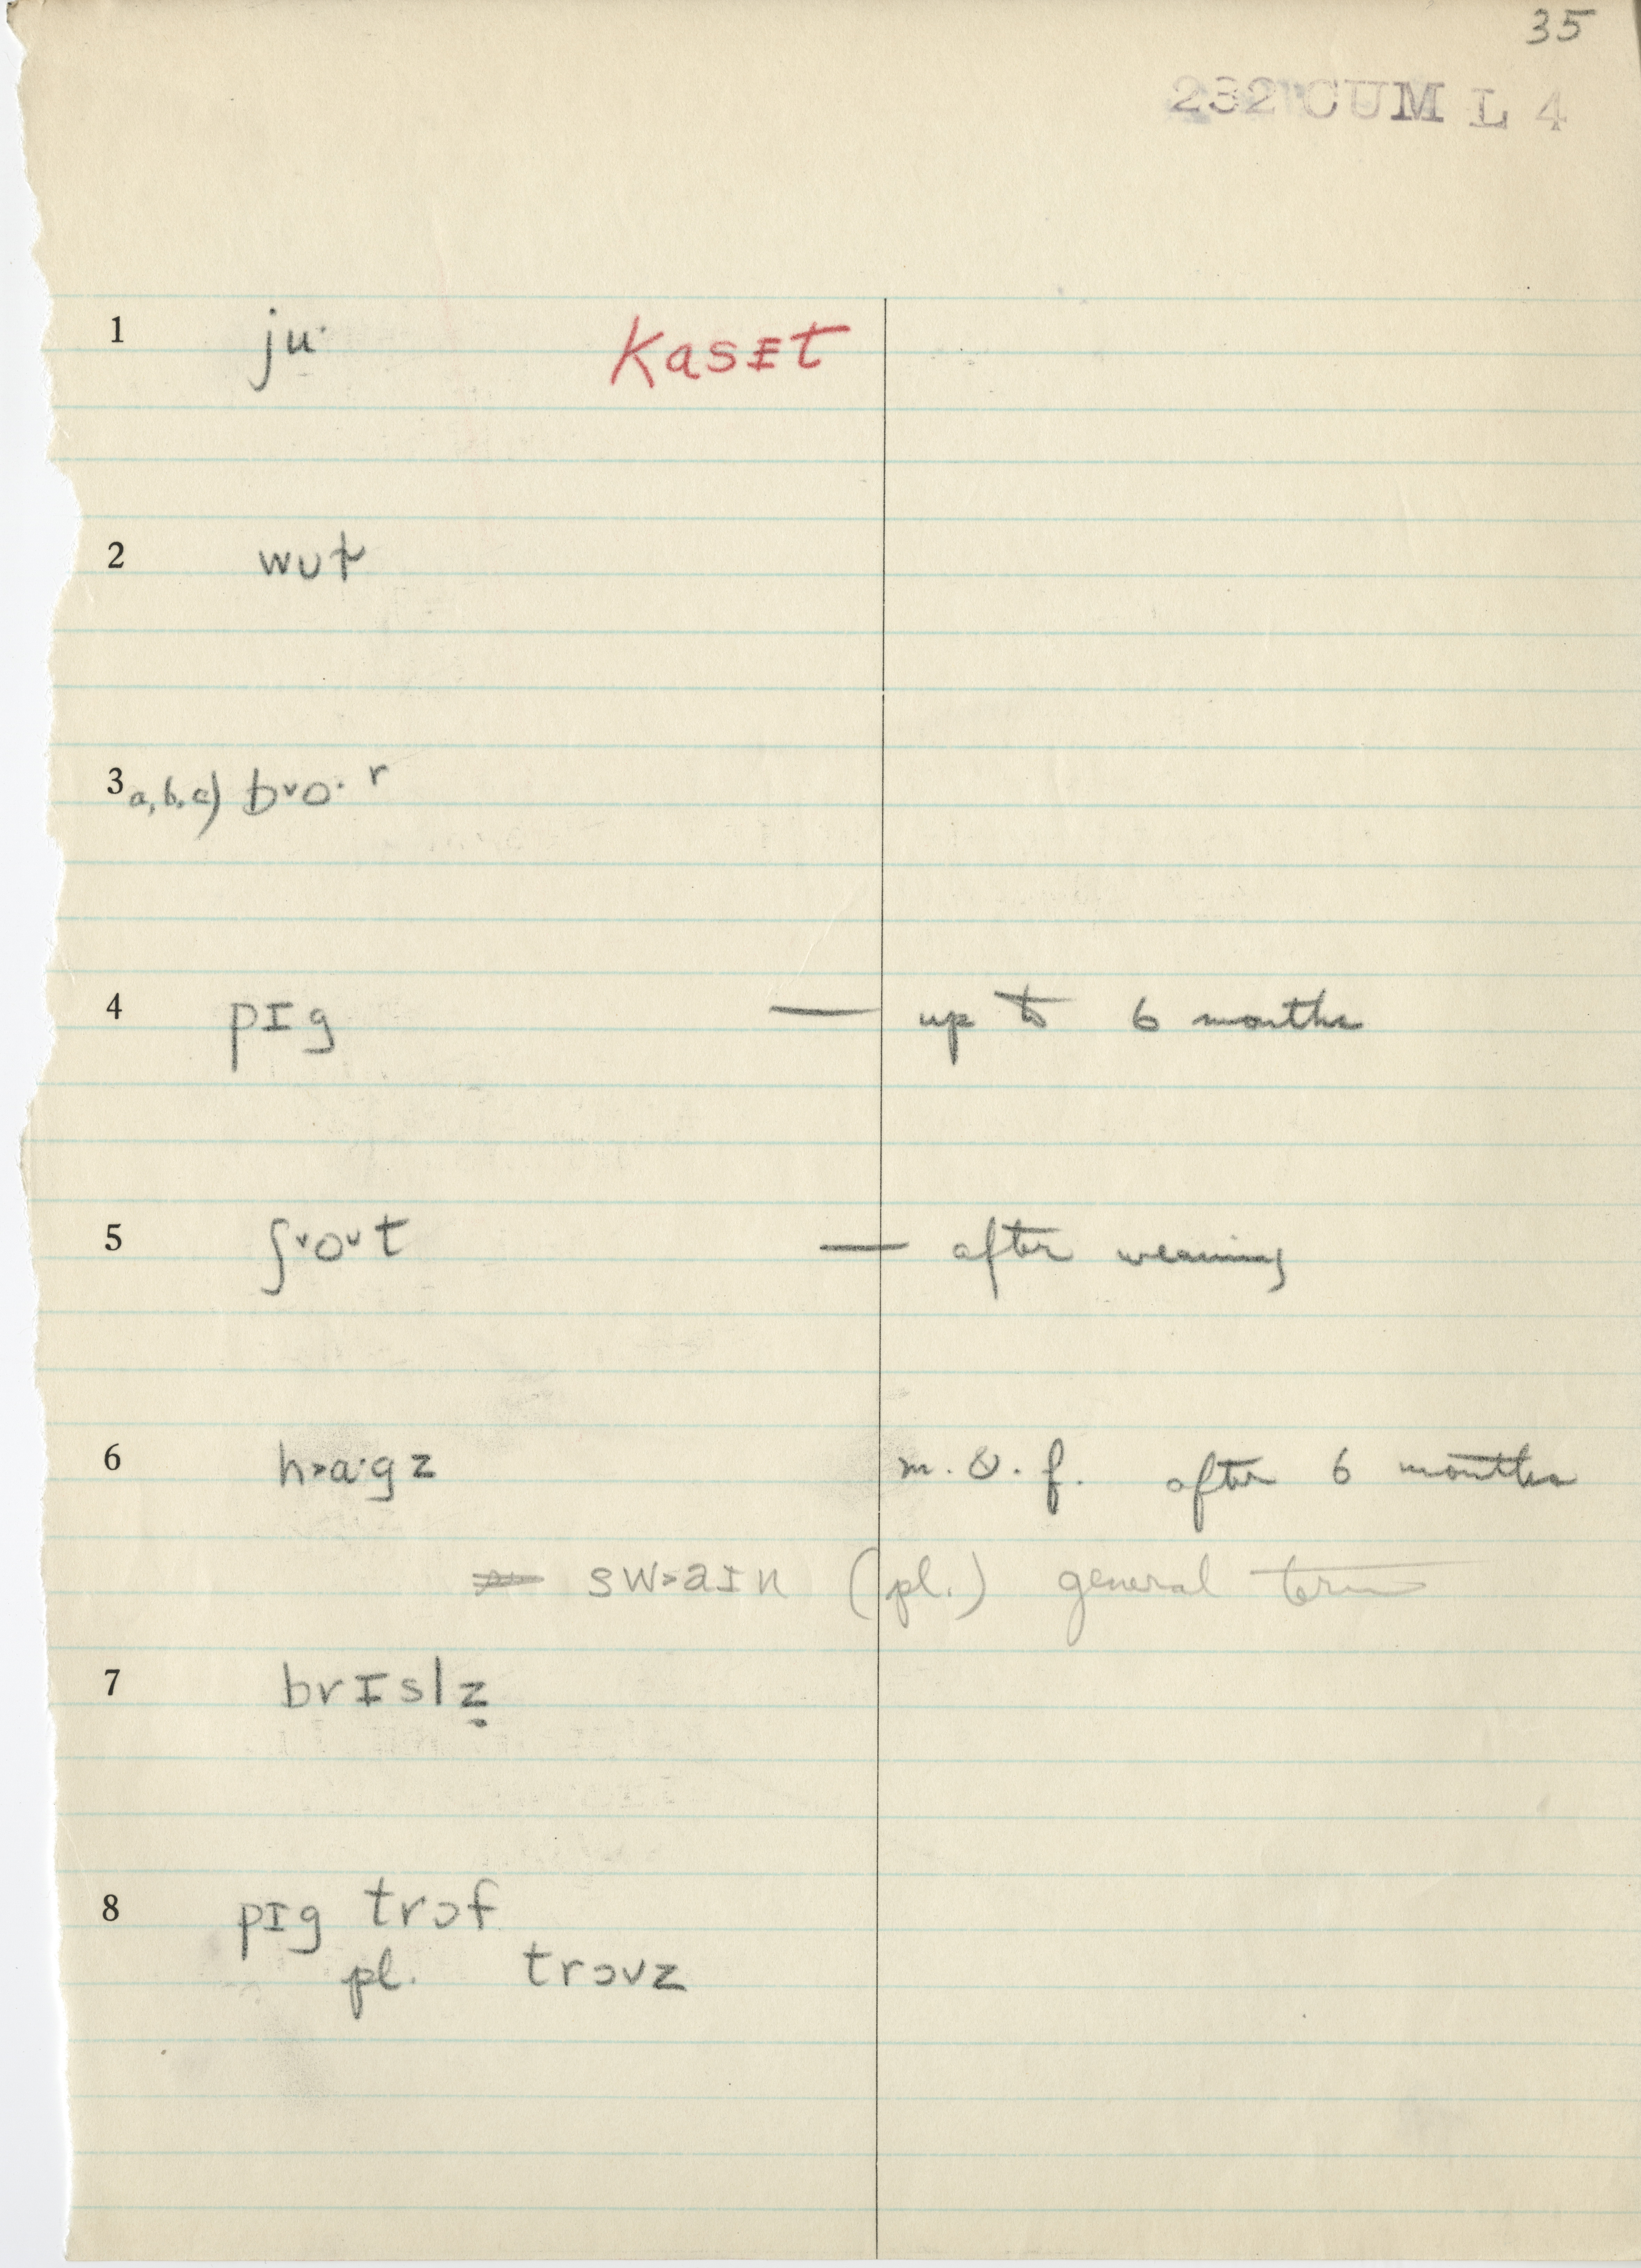 35
232 CUM L 4
1 ju· Kasɛt
2 wut̬
3 a, b, c) b˅o· r
4 pɪg — up to 6 months
5 ʃ˅o˅t — after weaning
6 h˃a·gz m. & f. after 6 months
sw˃aɪn (pl.) general term
7 brɪslz̥
8 pɪg trɔf
pl. trɔvz